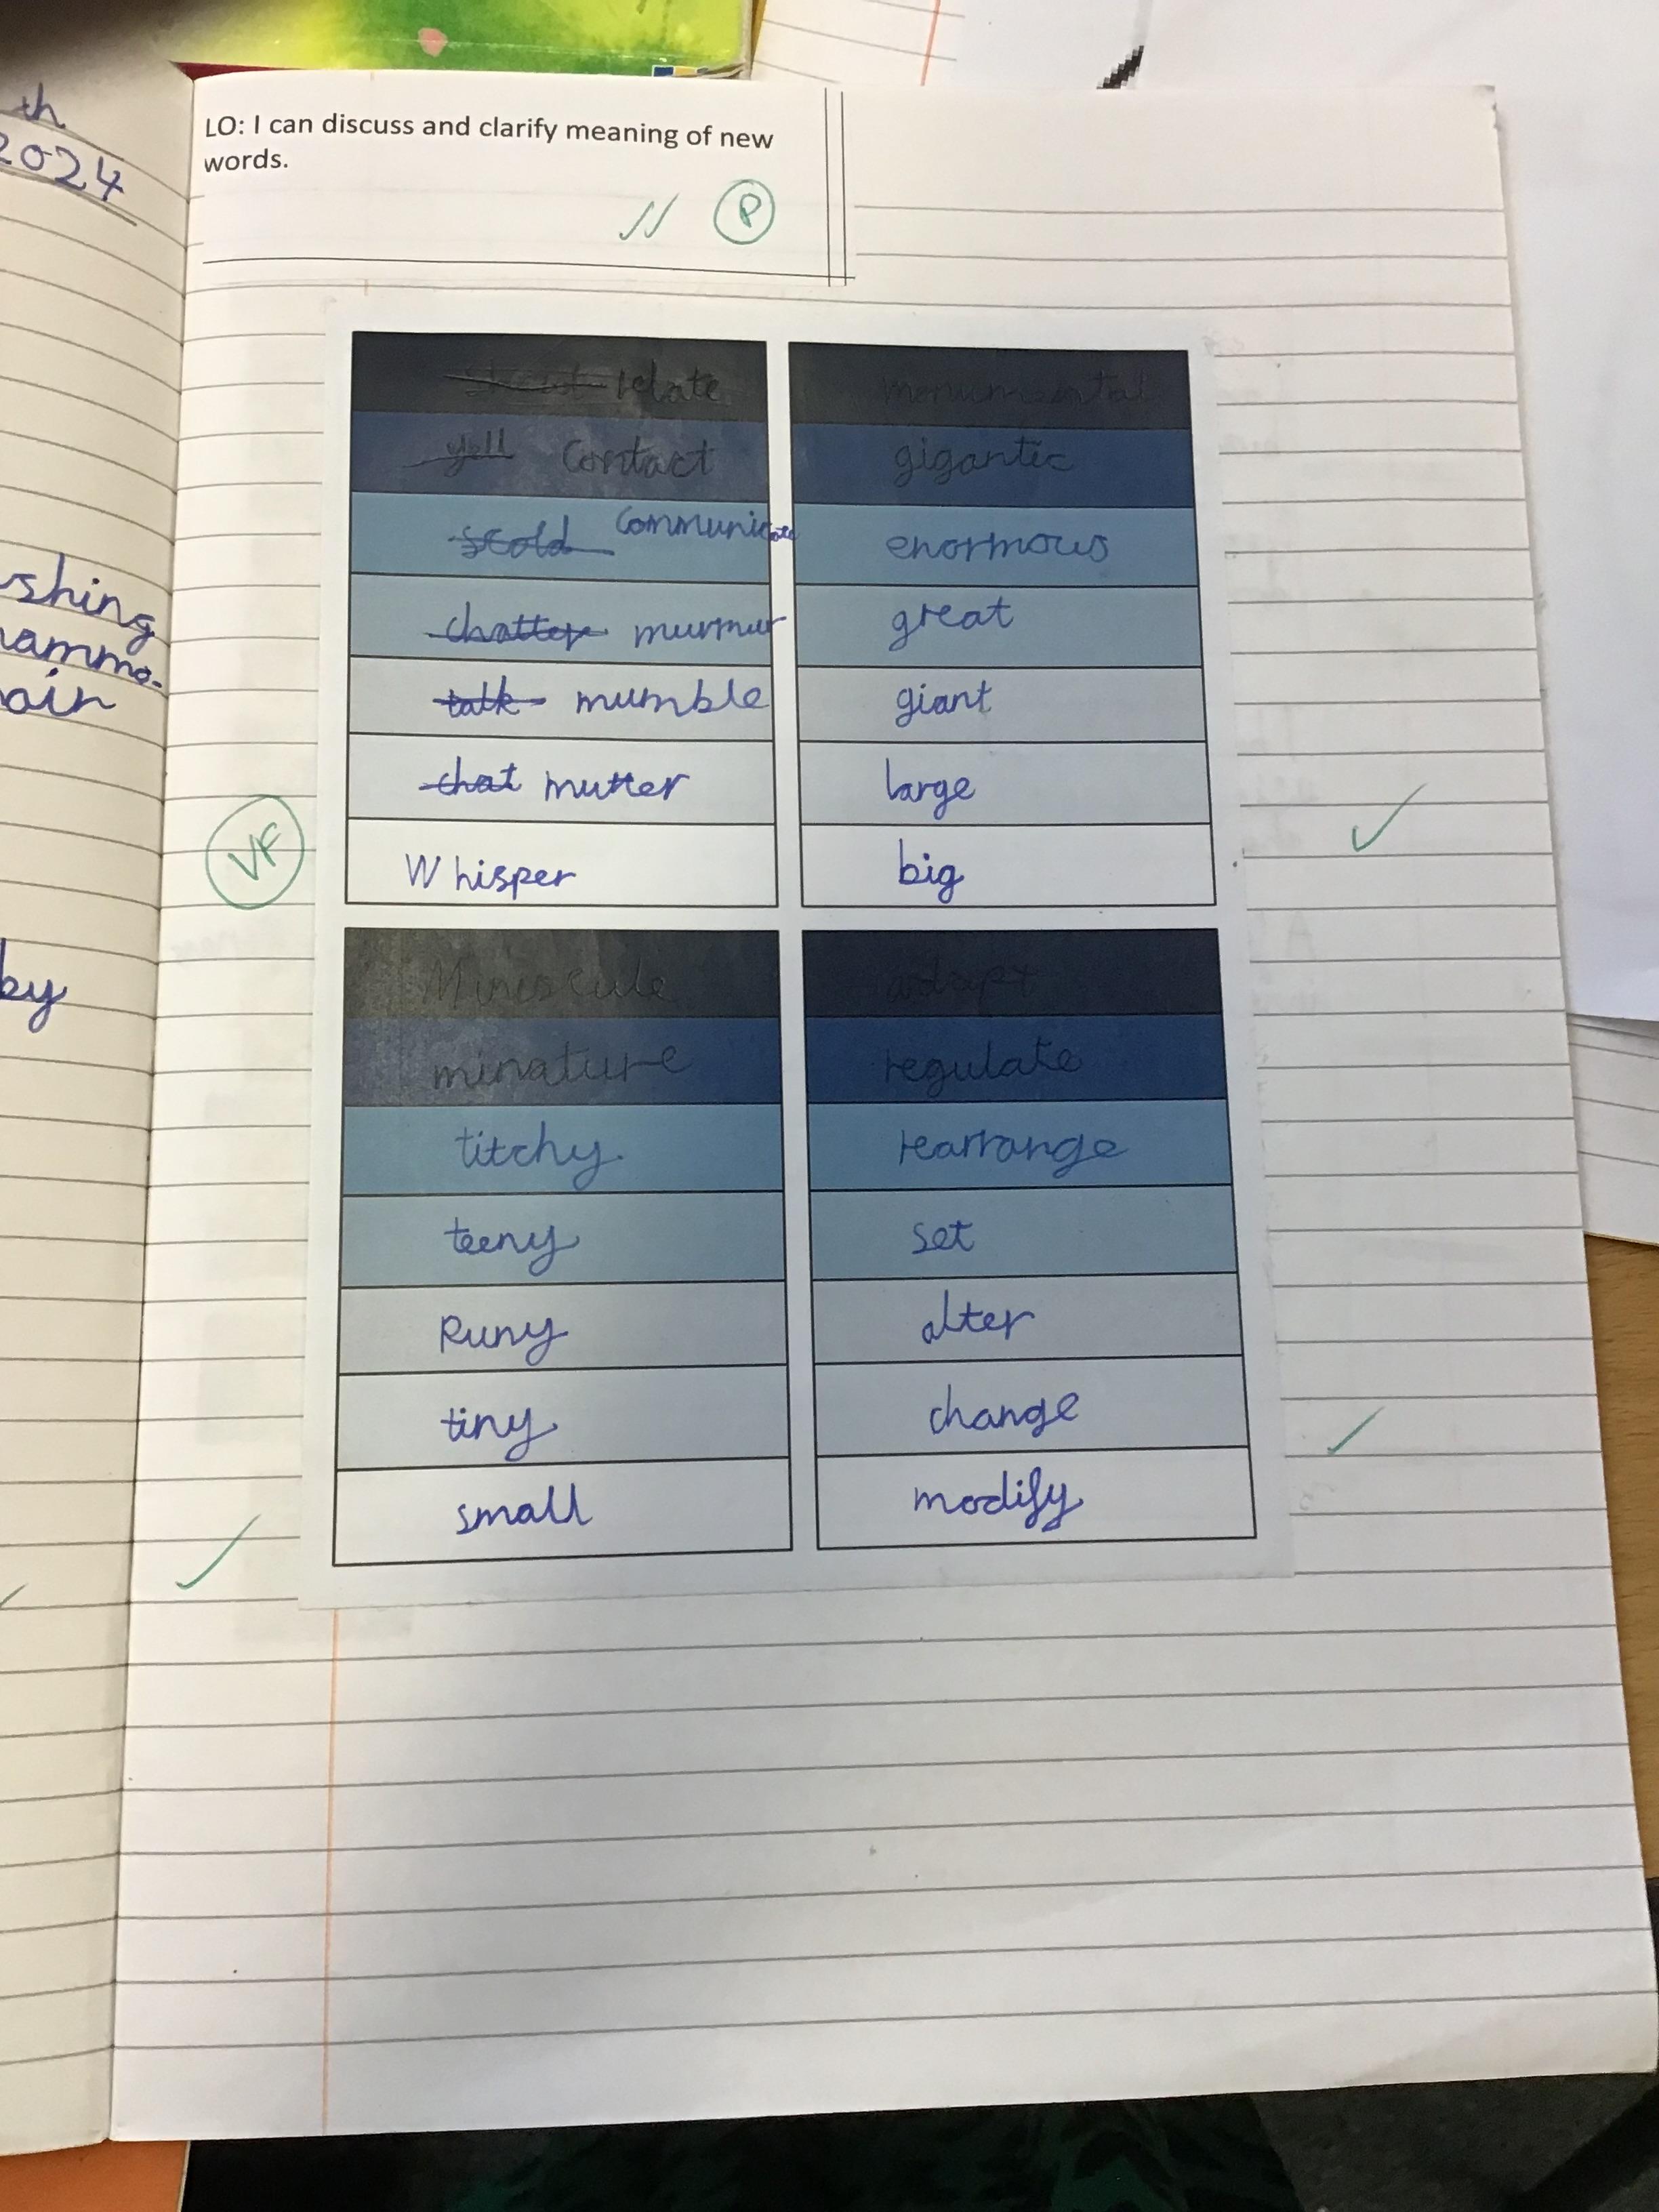 th
2024
shing
ammo-
air
by
LO: I can discuss and clarify meaning of new
words.
P
relate
yell Contact
scold Communicate
chatter murmur
talk mumble
chat mutter
Whisper
VF
monumental
gigantic
enormous
great
giant
large
big
Miniscule
minature
titchy
teeny
Puny
tiny
small
adapt
regulate
rearrange
set
alter
change
modify